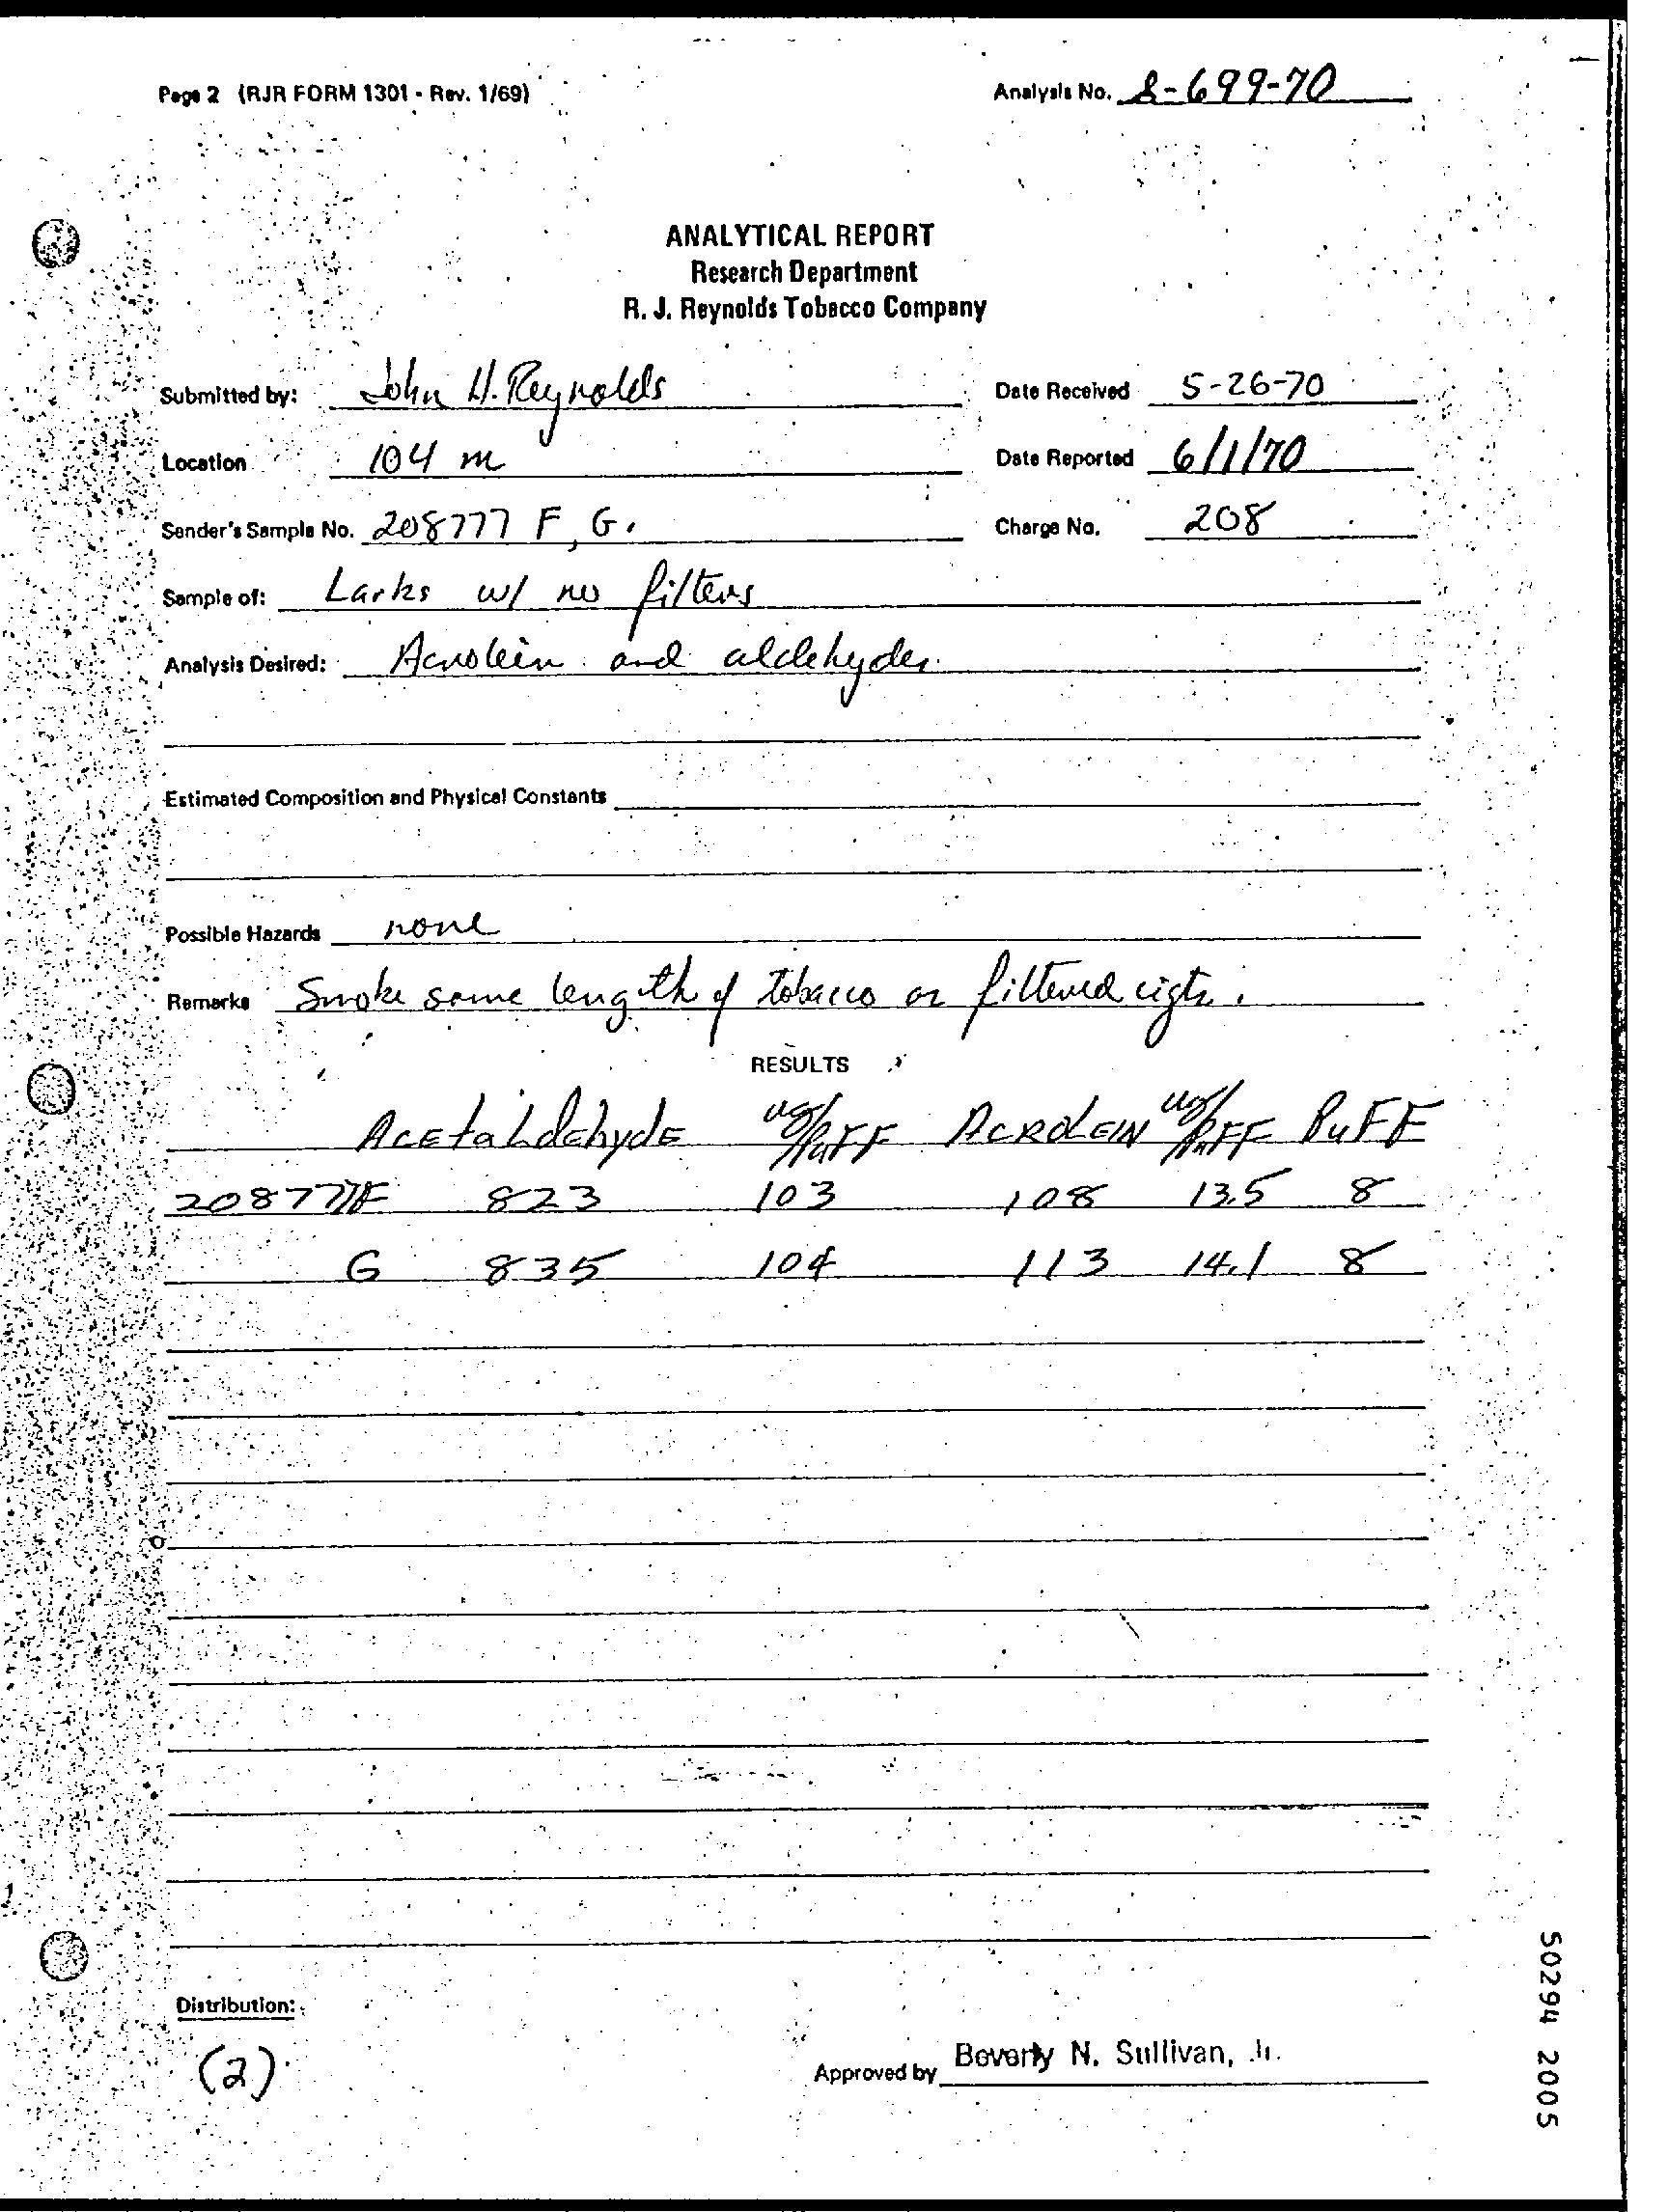 Page 2 (RJR FORM 1301 - Rev. 1/69)
Analysis No. S-699-70
ANALYTICAL REPORT
Research Department
R. J. Reynolds Tobacco Company
Submitted by: John H. Reynolds
Date Received 5-26-70
Location 104 m
Date Reported 6/1/70
Sender's Sample No. 208777 F, G.
Charge No. 208
Sample of: Larks w/ no filters
Analysis Desired: Acrolein and aldehydes.
Estimated Composition and Physical Constants
Possible Hazards none
Remarks Smoke same length of tobacco as filtered cigts.
RESULTS
Acetaldehyde ug/Puff ACROLEIN ug/Puff PuFF
208777F 823 103 108 13.5 8
G 835 104 113 14.1 8
Distribution:
(2)
Approved by Beverly N. Sullivan, Jr.
50294 2005